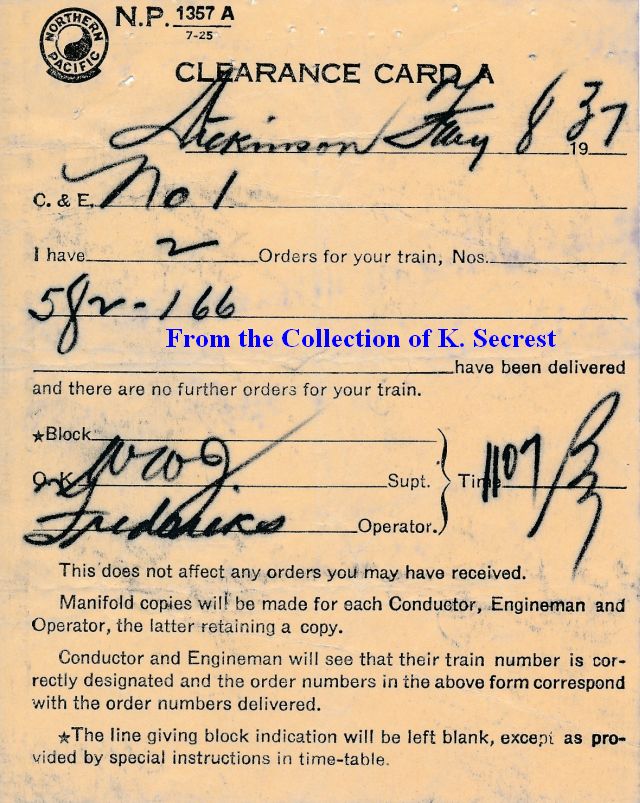 NORTHERN PACIFIC
N.P. 1357 A
7-25
CLEARANCE CARD A
Dickinson Fary 8 1937
C. & E. No 1
I have 2 Orders for your train, Nos.
582-166
From the Collection of K. Secrest
have been delivered
and there are no further orders for your train.
★Block
O. K. WWJ Supt. Time 1107
Fredericks Operator.
This does not affect any orders you may have received.
Manifold copies will be made for each Conductor, Engineman and
Operator, the latter retaining a copy.
Conductor and Engineman will see that their train number is cor-
rectly designated and the order numbers in the above form correspond
with the order numbers delivered.
★The line giving block indication will be left blank, except as pro-
vided by special instructions in time-table.